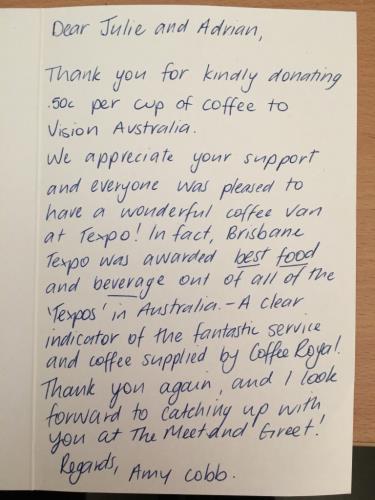 Dear Julie and Adrian,
Thank you for kindly donating
.50c per cup of coffee to
Vision Australia.
We appreciate your support
and everyone was pleased to
have a wonderful coffee van
at Texpo! In fact, Brisbane
Texpo was awarded best food
and beverage out of all of the
'Texpos' in Australia. - A clear
indicator of the fantastic service
and coffee supplied by Coffee Royal.
Thank you again, and I look
forward to catching up with
you at The Meet and Greet!
Regards, Amy Cobb.